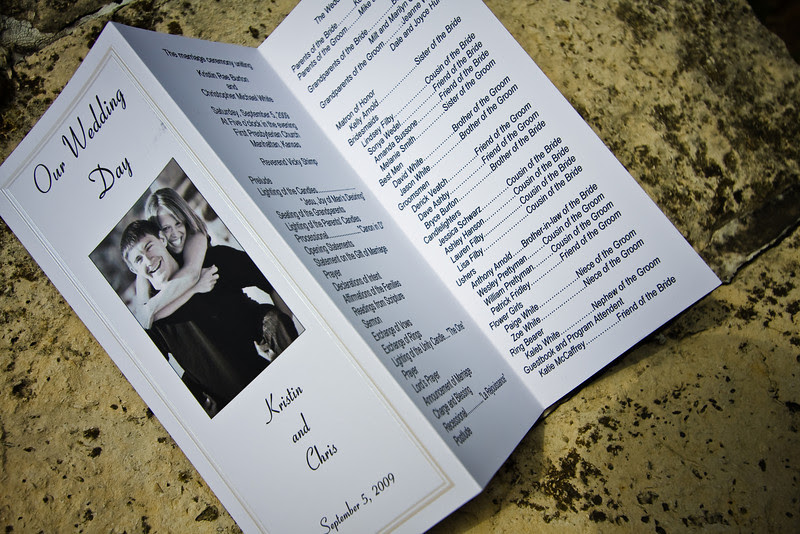 Our Wedding
Day
Kristin
and
Chris
September 5, 2009
The marriage ceremony uniting
Kristin Rae Burton
and
Christopher Michael White
Saturday, September 5, 2009
At Five o'clock in the evening
First Presbyterian Church
Manhattan, Kansas
Reverend Vicky Stamp
Prelude
Lighting of the Candles
"Jesu, Joy of Man's Desiring"
Seating of the Grandparents
Lighting of the Parents' Candles
Processional "Canon in D"
Opening Statements
Statement on the Gift of Marriage
Prayer
Declarations of Intent
Affirmations of the Families
Readings from Scripture
Sermon
Exchange of Vows
Exchange of Rings
Lighting of the Unity Candle
Prayer
Lord's Prayer
Announcement of Marriage
Charge and Blessing
Recessional
Postlude
The Wedding
Parents of the Bride
Parents of the Groom Mike
Grandparents of the Bride Milt and Marilyn
Grandparents of the Groom Jeanne
Dale and Joyce
Matron of Honor
Kelly Arnold Sister of the Bride
Bridesmaids
Lindsey Filby Cousin of the Bride
Sonya Wedel Friend of the Bride
Amanda Bussone Friend of the Bride
Melanie Smith Sister of the Groom
Best Men
David White Brother of the Groom
Jason White Brother of the Groom
Groomsmen
Derick Veatch Friend of the Groom
Dave Ashby Friend of the Groom
Bryce Burton Brother of the Bride
Candlelighters
Jessica Schwarz Cousin of the Bride
Ashley Hanson Cousin of the Bride
Lauren Filby Cousin of the Bride
Lisa Filby Cousin of the Bride
Ushers
Anthony Arnold Brother-in-law of the Bride
Wesley Prettyman Cousin of the Groom
William Prettyman Cousin of the Groom
Patrick Fridley Friend of the Groom
Flower Girls
Paige White Niece of the Groom
Zoe White Niece of the Groom
Ring Bearer
Kaleb White Nephew of the Groom
Guestbook and Program Attendent
Katie McCaffrey Friend of the Bride